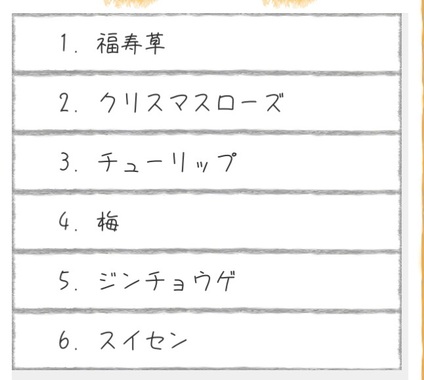 1. 福寿草
2. クリスマスローズ
3. チューリップ
4. 梅
5. ジンチョウゲ
6. スイセン